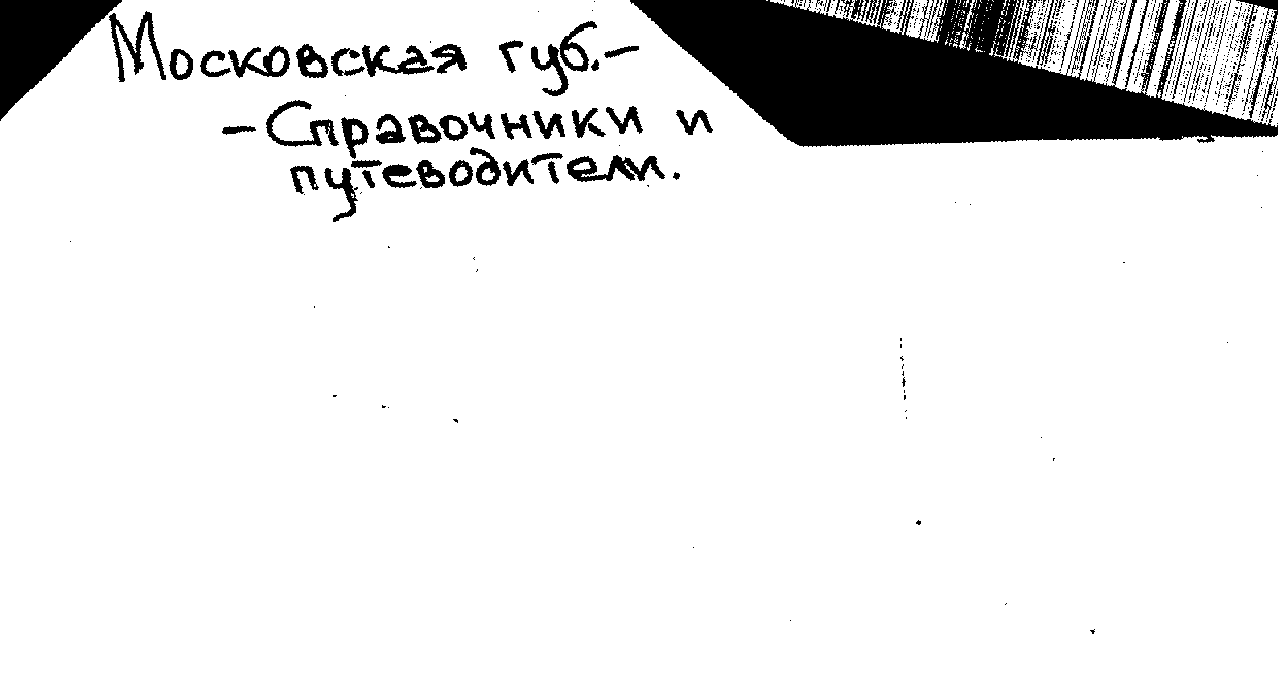 Московская губ.-
-Справочники и
путеводители.